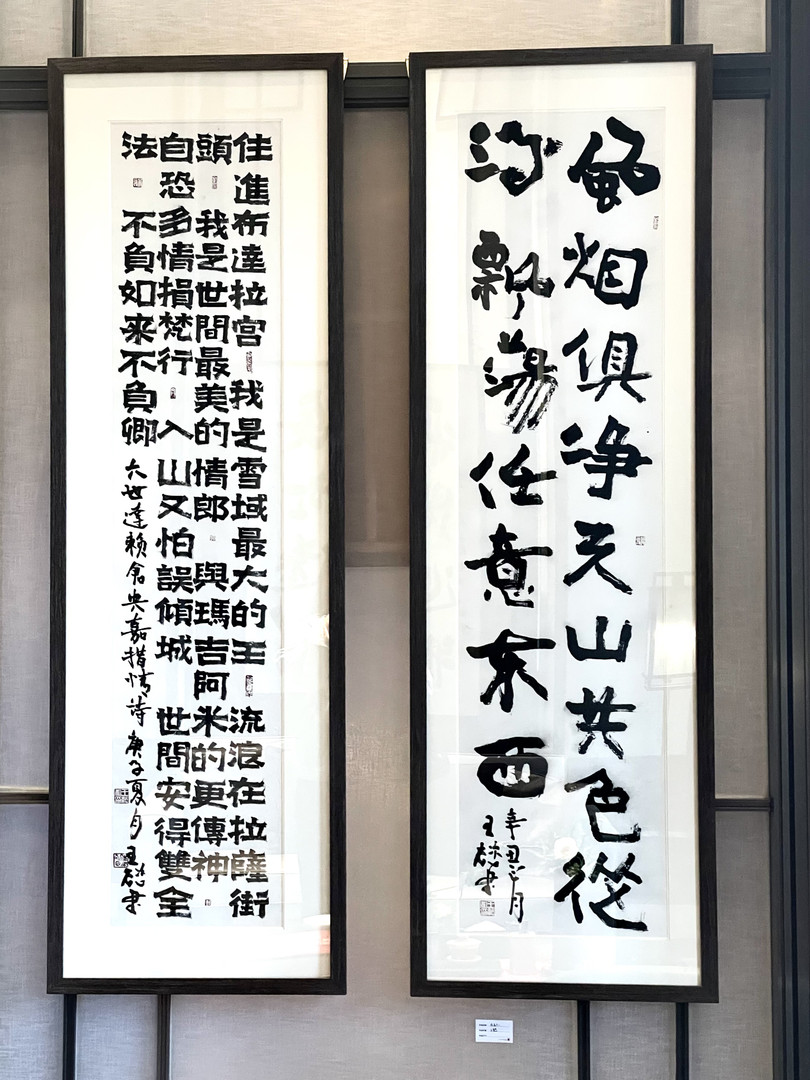 風烟俱净天山共色從
流飘蕩任意东西
辛丑
王
住進布達拉宮 我是雪域最大的王 流浪在拉薩街
頭 我是世間最美的情郎 與瑪吉阿米的更傳神
自恐多情損梵行 入山又怕誤傾城 世間安得雙全
法 不負如来不負卿 六世達赖倉央嘉措情诗 庚子夏月 王